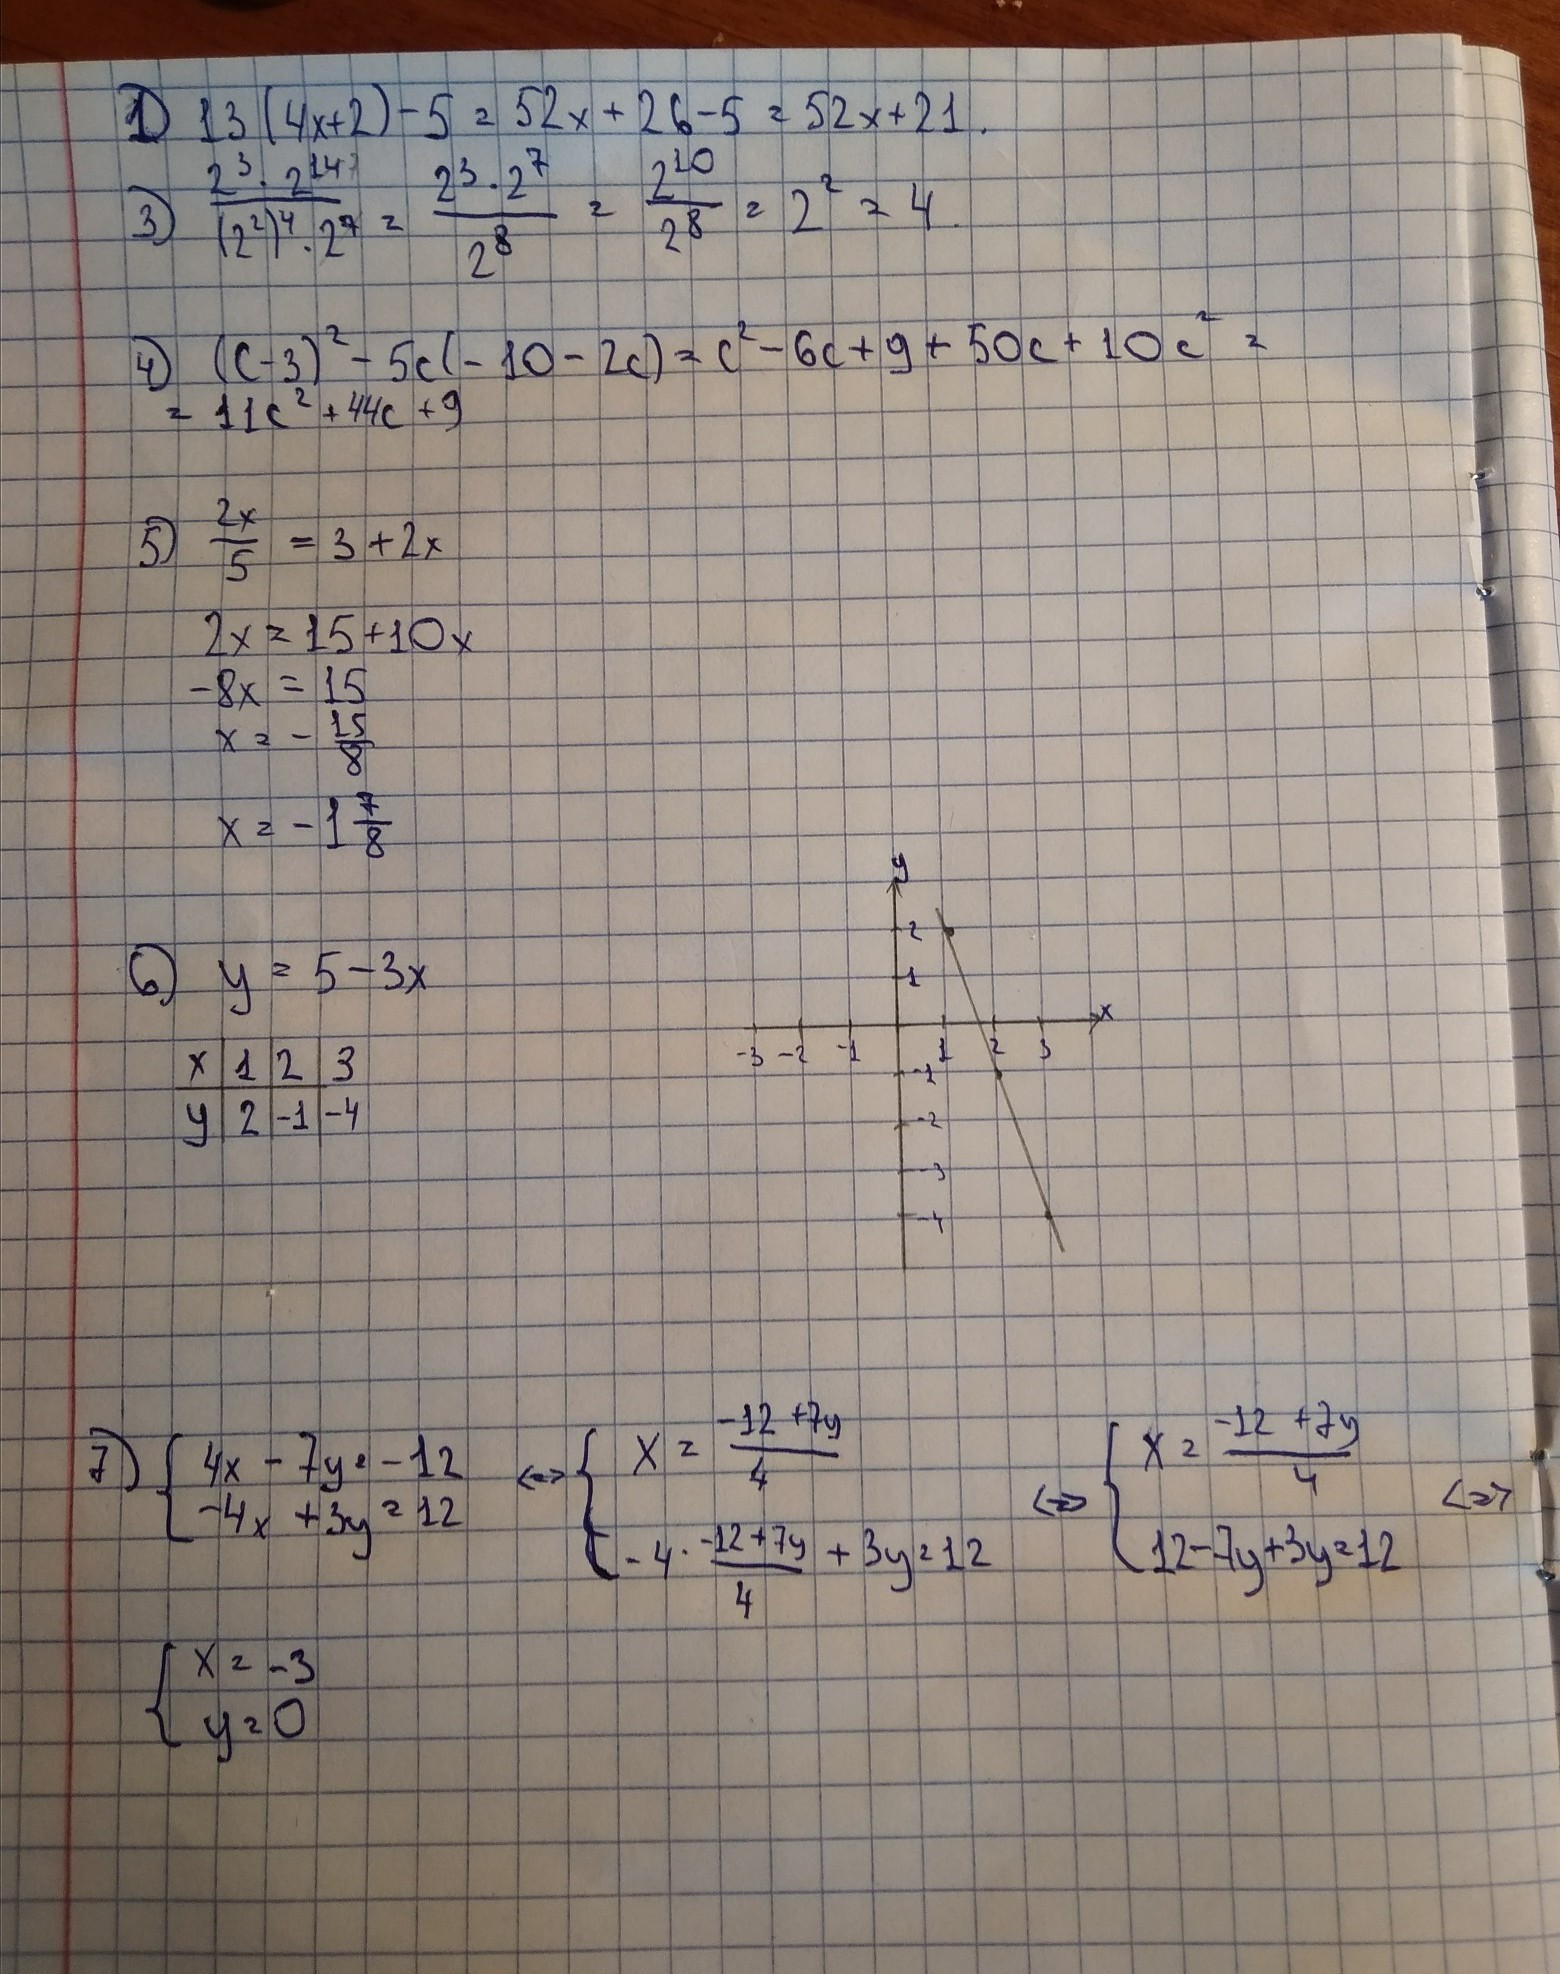 1) 13(4x+2)-5=52x+26-5=52x+21.
3) (2³·2¹⁴)/((2²)⁴·2⁷) = (2³·2⁷)/2⁸ = 2¹⁰/2⁸ = 2² = 4.
4) (c-3)²-5c(-10-2c)=c²-6c+9+50c+10c²=
=11c²+44c+9
5) 2x/5 = 3+2x
2x=15+10x
-8x=15
x=-15/8
x=-1 7/8
6) y=5-3x
x 1 2 3
y 2 -1 -4
y
2
1
x
-3 -2 -1 1 2 3
-1
-2
-3
-4
7) { 4x-7y=-12 <=> { x=(-12+7y)/4 <=> { x=(-12+7y)/4 <=>
-4x+3y=12 -4·(-12+7y)/4+3y=12 12-7y+3y=12
{ x=-3
y=0